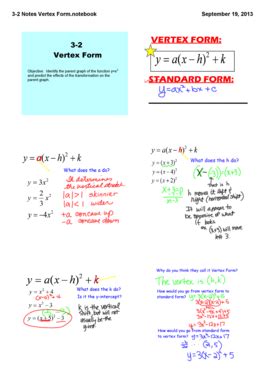 3-2 Notes Vertex Form.notebook
September 19, 2013
3-2
Vertex Form
Objective Identify the parent graph of the function y=x²
and predict the effects of the transformation on the
parent graph.
VERTEX FORM:
y = a(x − h)² + k
STANDARD FORM:
y=ax²+bx+c
y = a(x − h)² + k
What does the a do?
y = 3x²
y = 2/3 x²
y = −4x²
It determines
the vertical stretch
|a|>1 skinnier
|a|<1 wider
+a concave up
-a concave down
y = a(x − h)² + k
What does the h do?
y = (x + 3)²
y = (x − 4)²
y = (x + 2)²
h moves it left &
right (horizontal shift)
It will appear to
be opposite of what
it looks
ex (x+3) will move
left 3.
y = a(x − h)² + k
What does the k do?
Is it the y-intercept?
y = x² + 4
y = x² − 3
y = (x + 5)² − 3
k is the vertical
shift, but will not
always be the
y-int.
Why do you think they call it Vertex Form?
The vertex is (h,k)
How would you go from vertex form to
standard form?
y=3(x-2)²+5
y=3x²-12x+17
How would you go from standard form
to vertex form?
y=3x²-12x+17
(2,5)
y=3(x-2)²+5